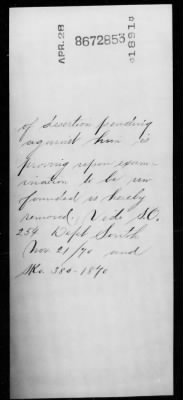 APR. 28
8672853
1891
of desertion pending
against him is
proving upon exam-
ination to be un
founded is hereby
removed. Vide S.O.
254 Dept. South
Nov 21/70 and
380-1870